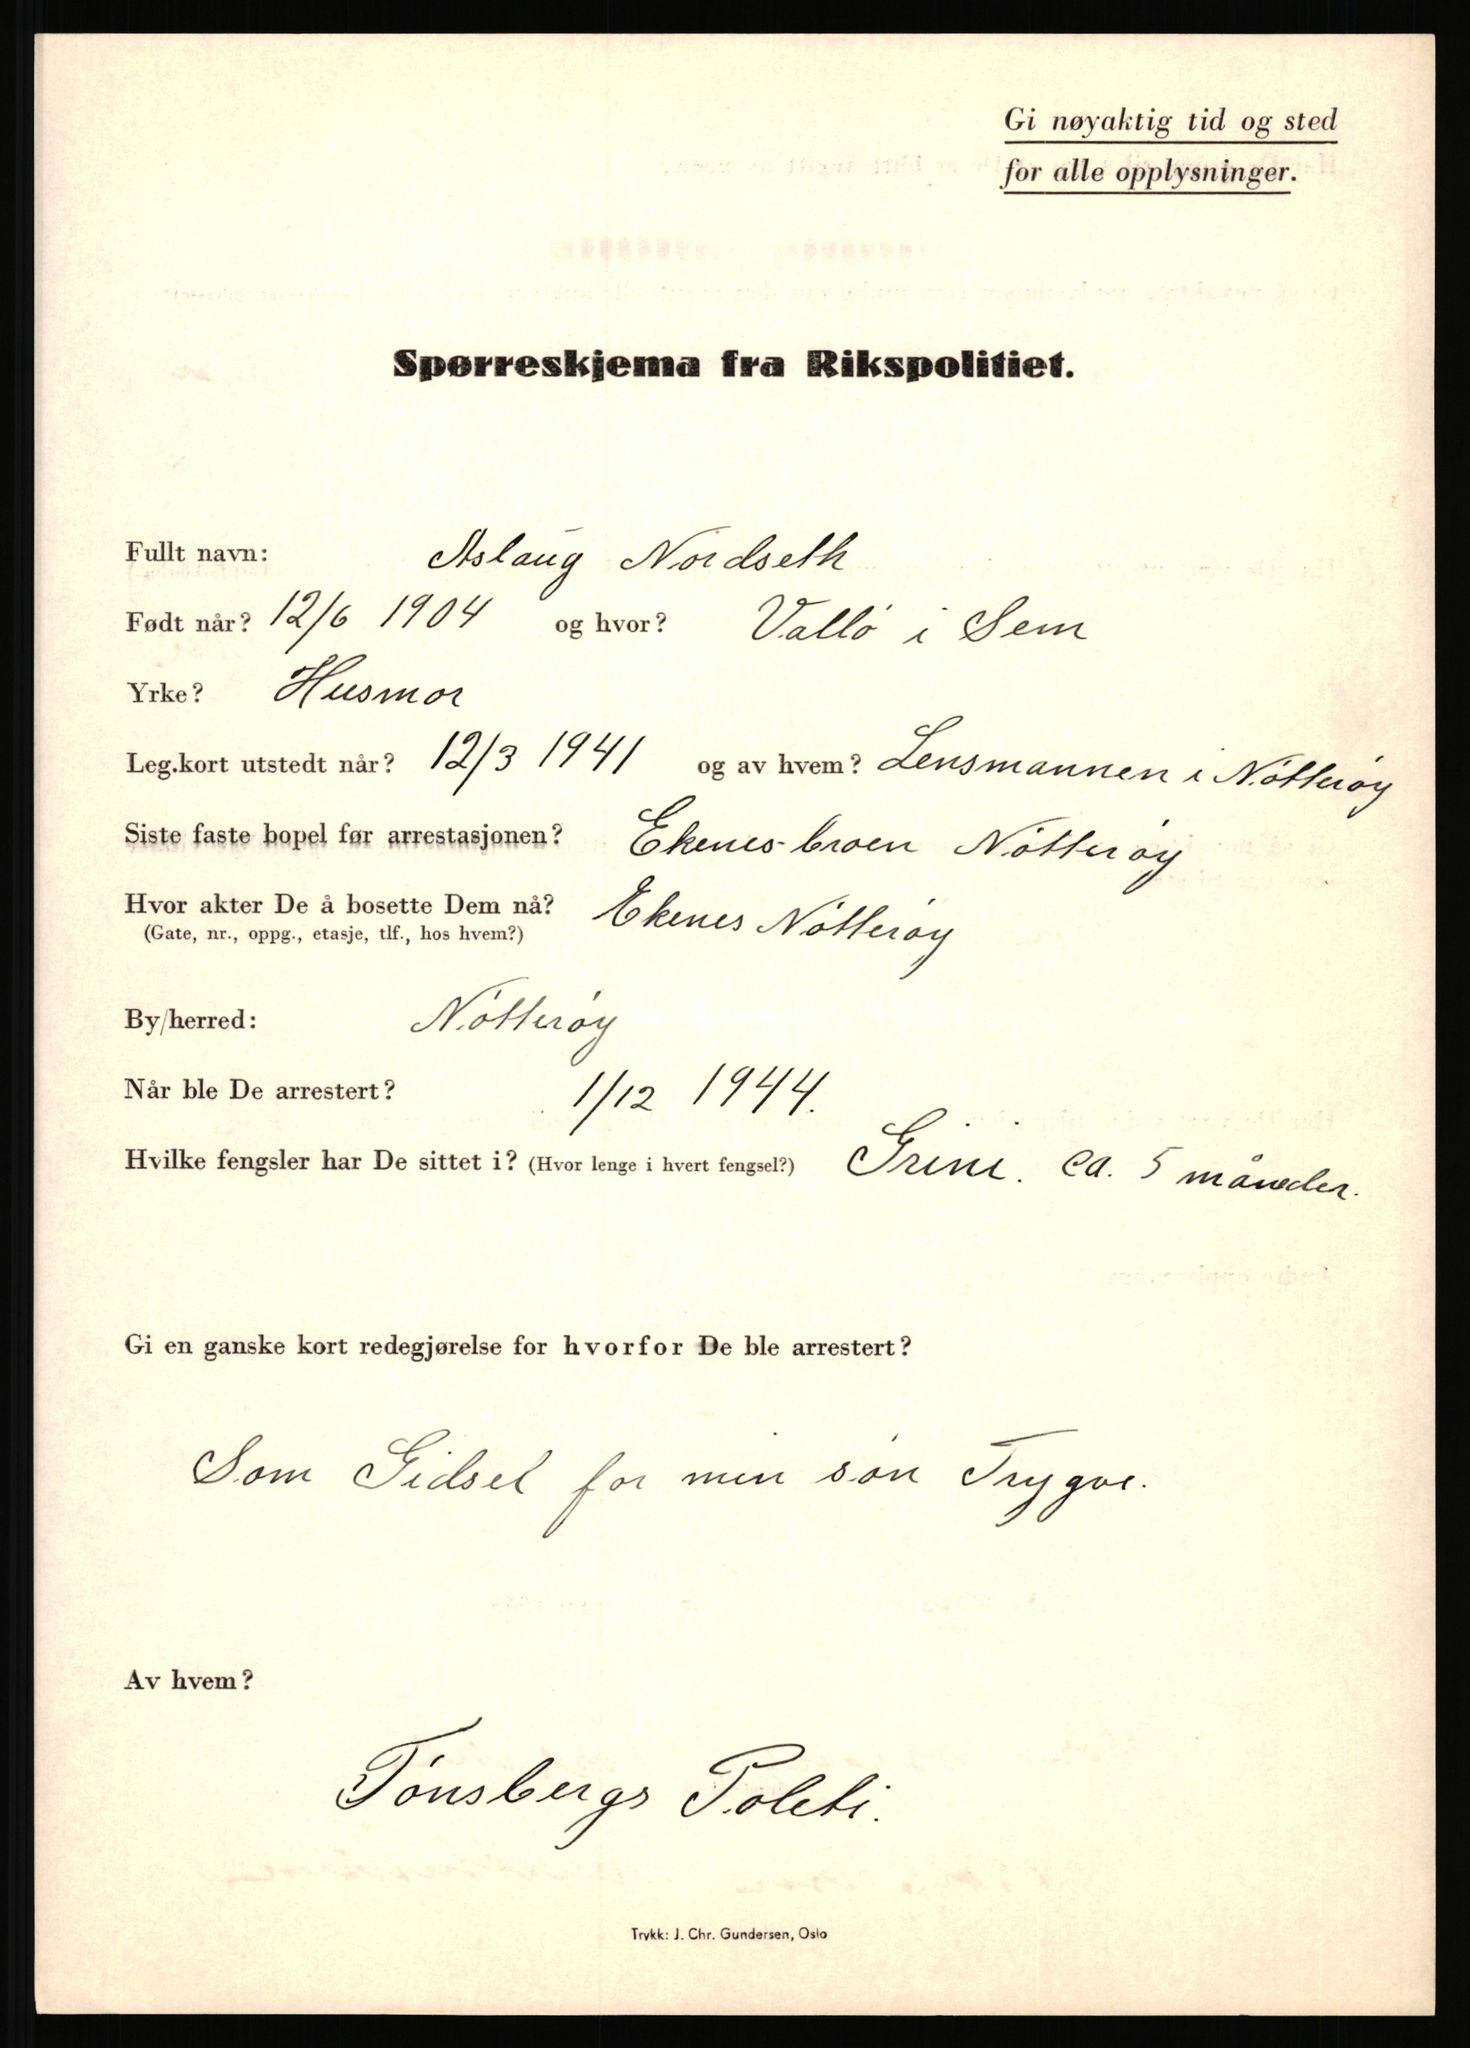 Gi nøyaktig tid og sted
for alle opplysninger.
Spørreskjema fra Rikspolitiet.
Fullt navn: Aslaug Nordseth
Født når? 12/6 1904 og hvor? Vallö i Sem
Yrke? Husmor
Leg.kort utstedt når? 12/3 1941 og av hvem? Lensmannen i Nötteröy
Siste faste bopel før arrestasjonen? Ekenes-broen Nötteröy
Hvor akter De å bosette Dem nå? Ekenes Nötteröy
(Gate, nr., oppg., etasje, tlf., hos hvem?)
By/herred: Nötteröy
Når ble De arrestert? 1/12 1944.
Hvilke fengsler har De sittet i? (Hvor lenge i hvert fengsel?) Grini. ca. 5 måneder.
Gi en ganske kort redegjørelse for hvorfor De ble arrestert?
Som Gidsel for min sön Trygve.
Av hvem?
Tönsbergs Politi.
Trykk: J. Chr. Gundersen, Oslo